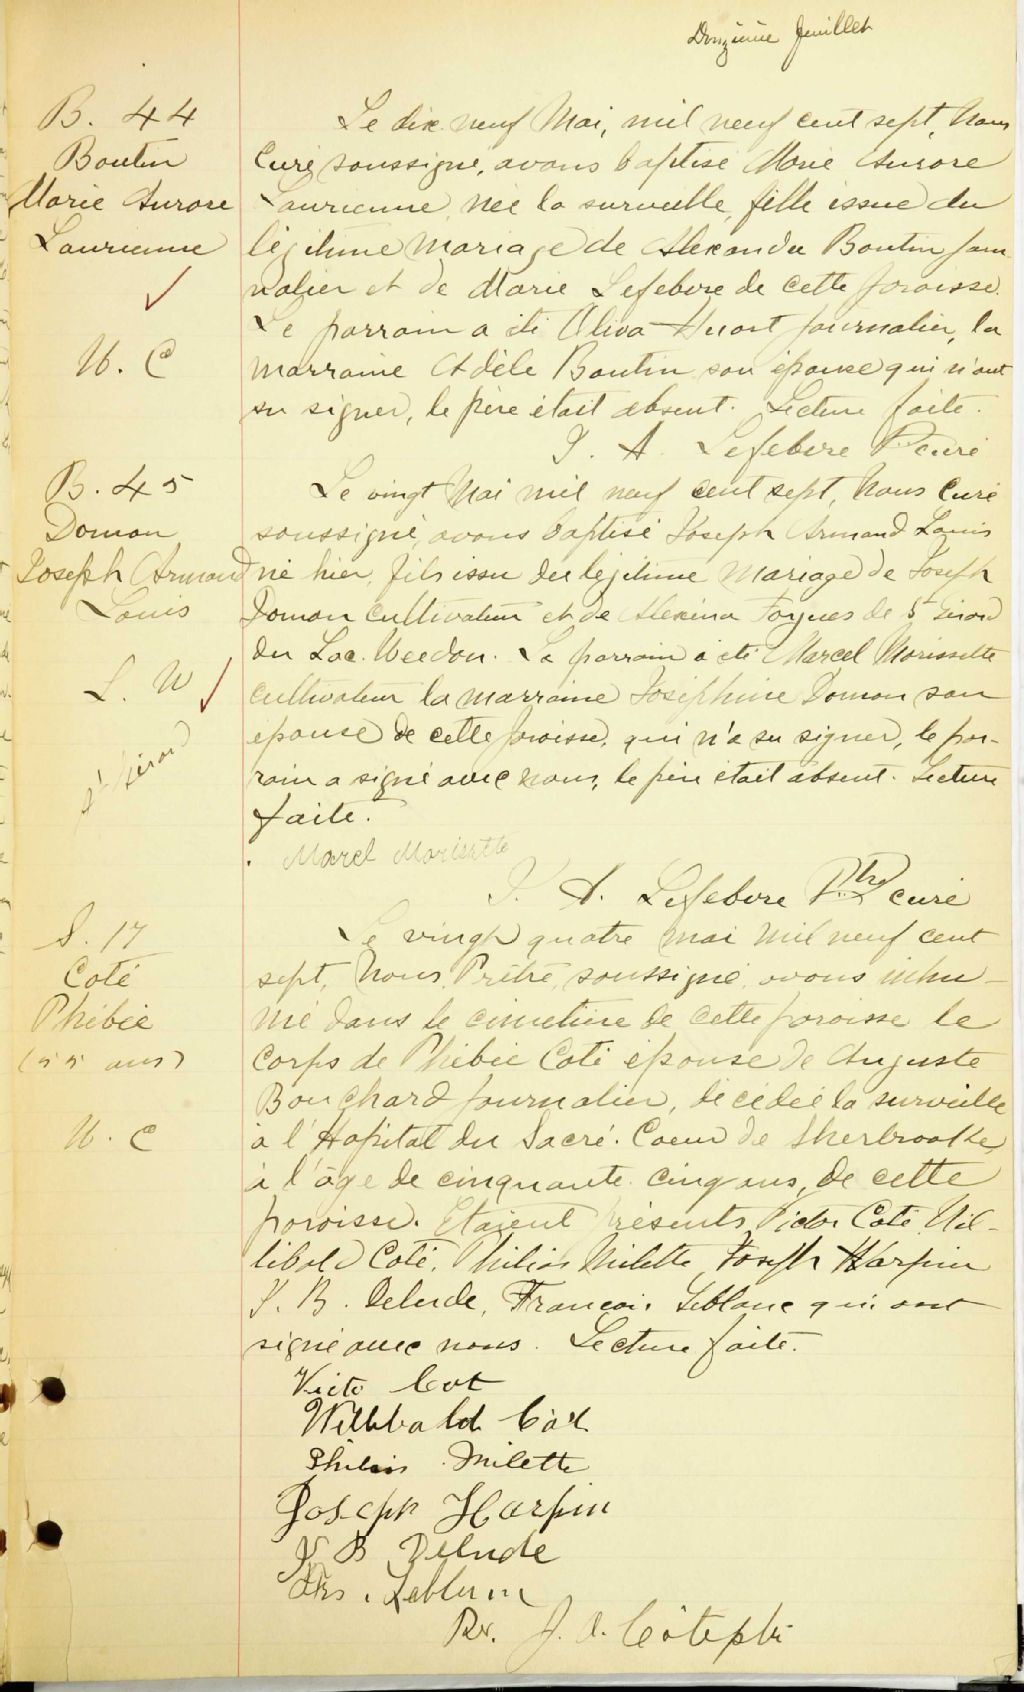 Douzième feuillet
B. 44
Boutin
Marie Aurore
Laurienne
U. C
Le dix neuf Mai, mil neuf cent sept, Nous
Curé soussigné, avons baptisé Marie Aurore
Laurienne, née la surveille, fille issue du
légitime mariage de Alexandre Boutin jour-
nalier et de Marie Lefebvre de cette paroisse.
Le parrain a été Oliva Huart journalier, la
marraine Adèle Boutin son épouse qui n'ont
su signer, le père était absent. Lecture faite.
J. A. Lefebvre Ptre curé
B. 45
Domon
Joseph Armand
Louis
L. W
St Gérard
Le vingt Mai mil neuf cent sept, Nous Curé
soussigné, avons baptisé Joseph Armand Louis
né hier, fils issu du légitime mariage de Joseph
Domon cultivateur et de Alexina de St Gérard
du Lac Weedon. Le parrain a été Marcel Morissette
cultivateur la marraine Joséphine Domon son
épouse de cette paroisse, qui n'a su signer, le par-
rain a signé avec nous, le père était absent. Lecture
faite.
Marcel Morissette
J. A. Lefebvre Ptre curé
S. 17
Coté
Phébée
(55 ans)
U. C
Le vingt quatre mai mil neuf cent
sept, Nous, Prêtre, soussigné, avons inhu-
mé dans le cimetière de cette paroisse le
corps de Phébée Coté épouse de Auguste
Bouchard journalier, décédée la surveille
à l'Hopital du Sacré-Coeur de Sherbrooke,
à l'âge de cinquante cinq ans, de cette
paroisse. Etaient présents Victor Coté, Wil-
libald Coté, Philias Milette, Joseph Harpin
J. B. Delude, François Leblanc qui ont
signé avec nous. Lecture faite.
Victo Cot
Willibald
Philias Milette
Joseph Harpin
J B Delude
Frs. Leblanc
Rv. J. A. Côté ptr